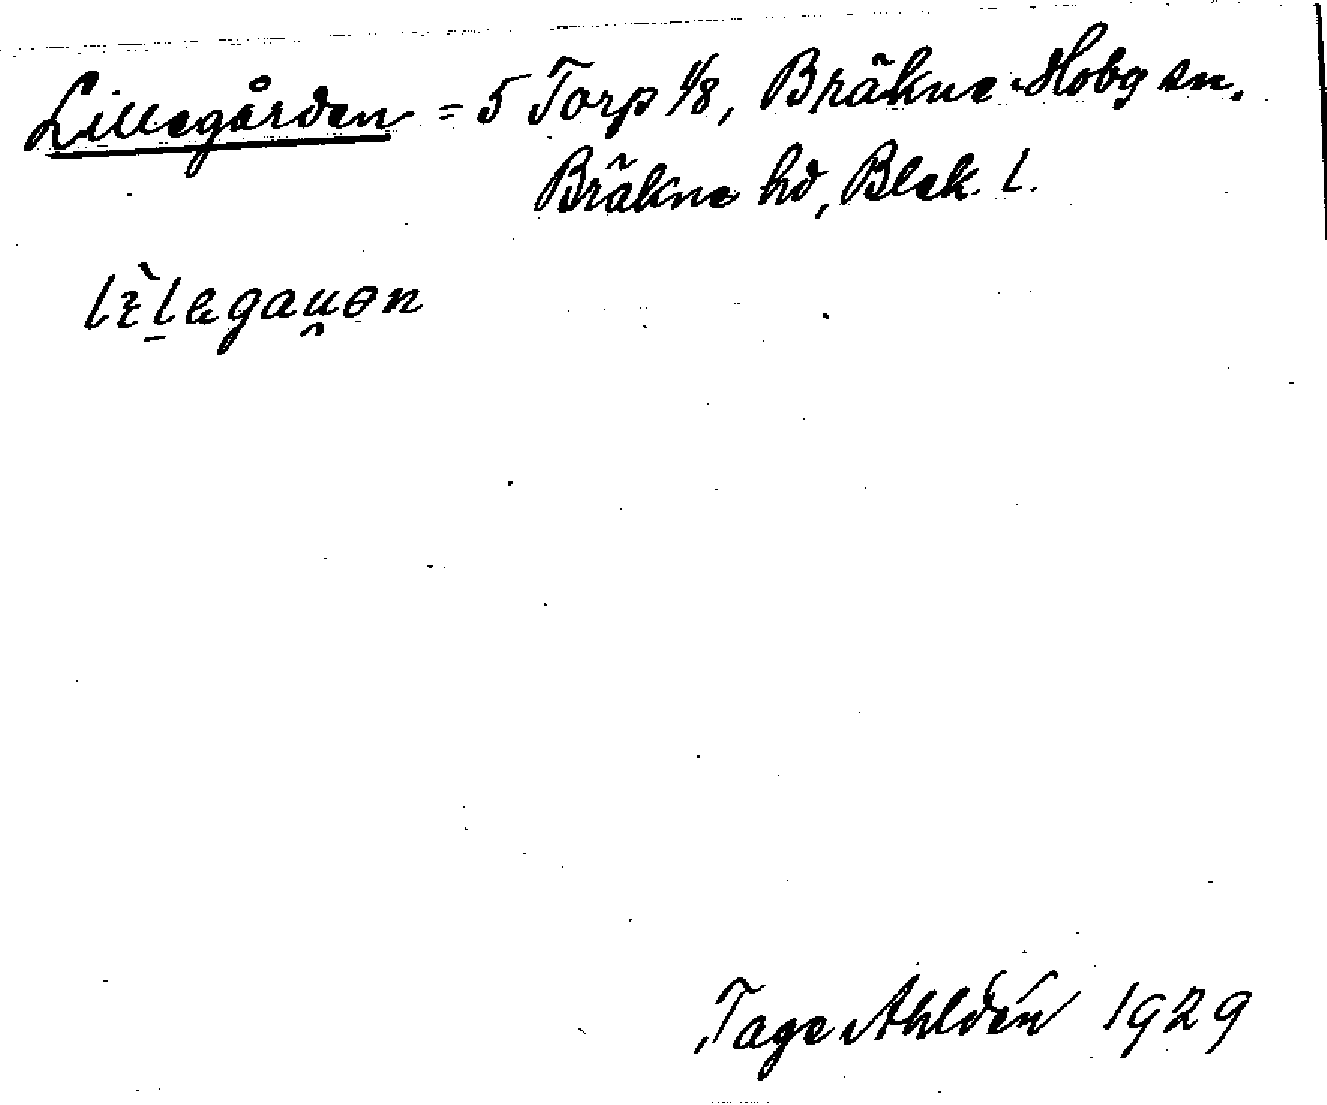 Lillegården = 5 Torp 1/8, Bräkne-Hoby sn.
Bräkne hd, Blek. l.
Tage Ahldén 1929